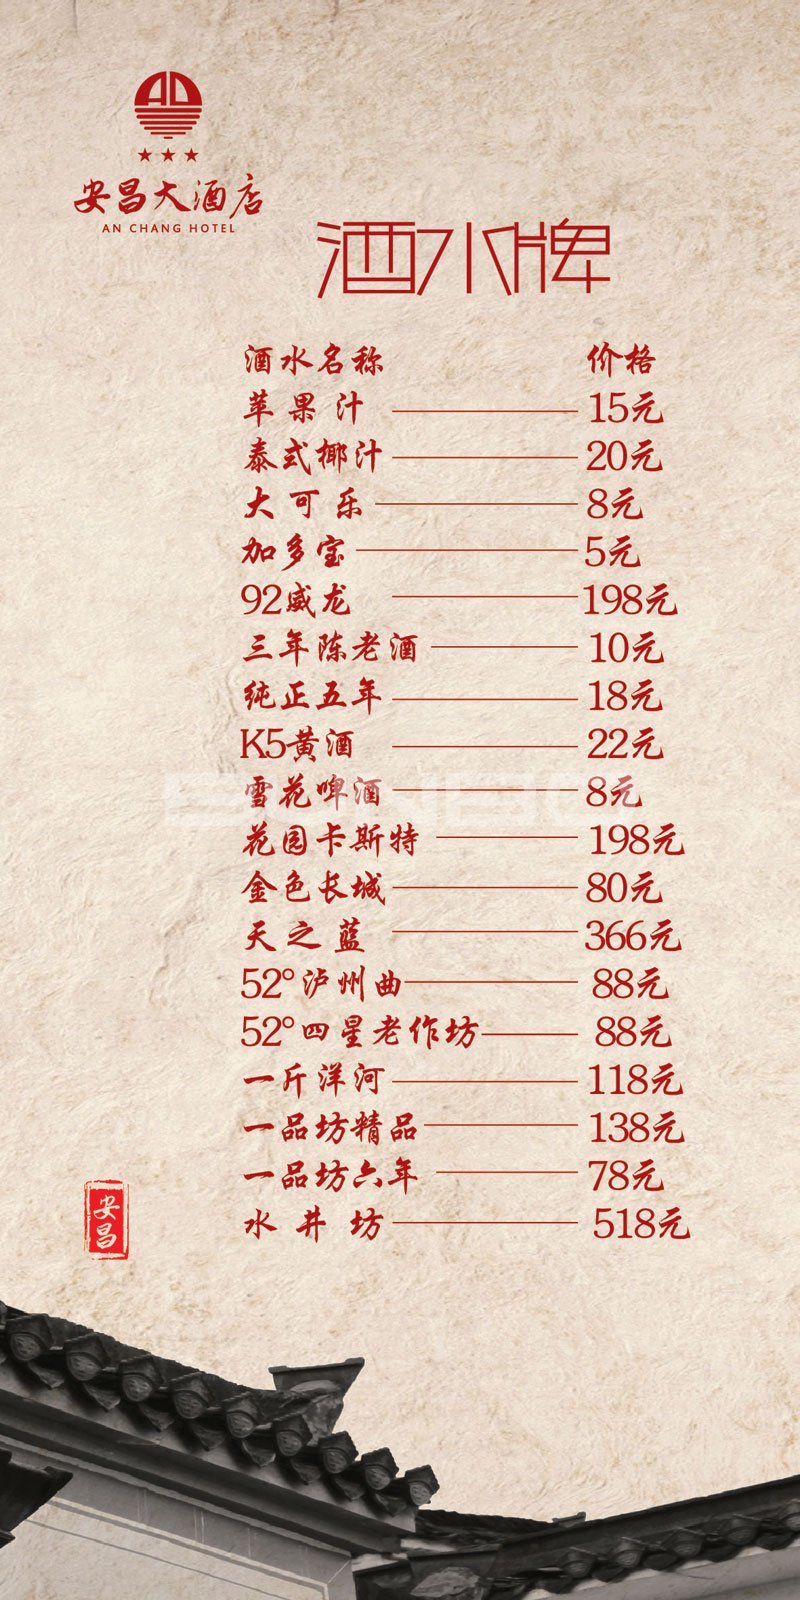 安昌大酒店
AN CHANG HOTEL
酒水牌
酒水名称 价格
苹果汁 15元
泰式椰汁 20元
大可乐 8元
加多宝 5元
92威龙 198元
三年陈老酒 10元
纯正五年 18元
K5黄酒 22元
雪花啤酒 8元
花园卡斯特 198元
金色长城 80元
天之蓝 366元
52°泸州曲 88元
52°四星老作坊 88元
一斤洋河 118元
一品坊精品 138元
一品坊六年 78元
水井坊 518元
安昌